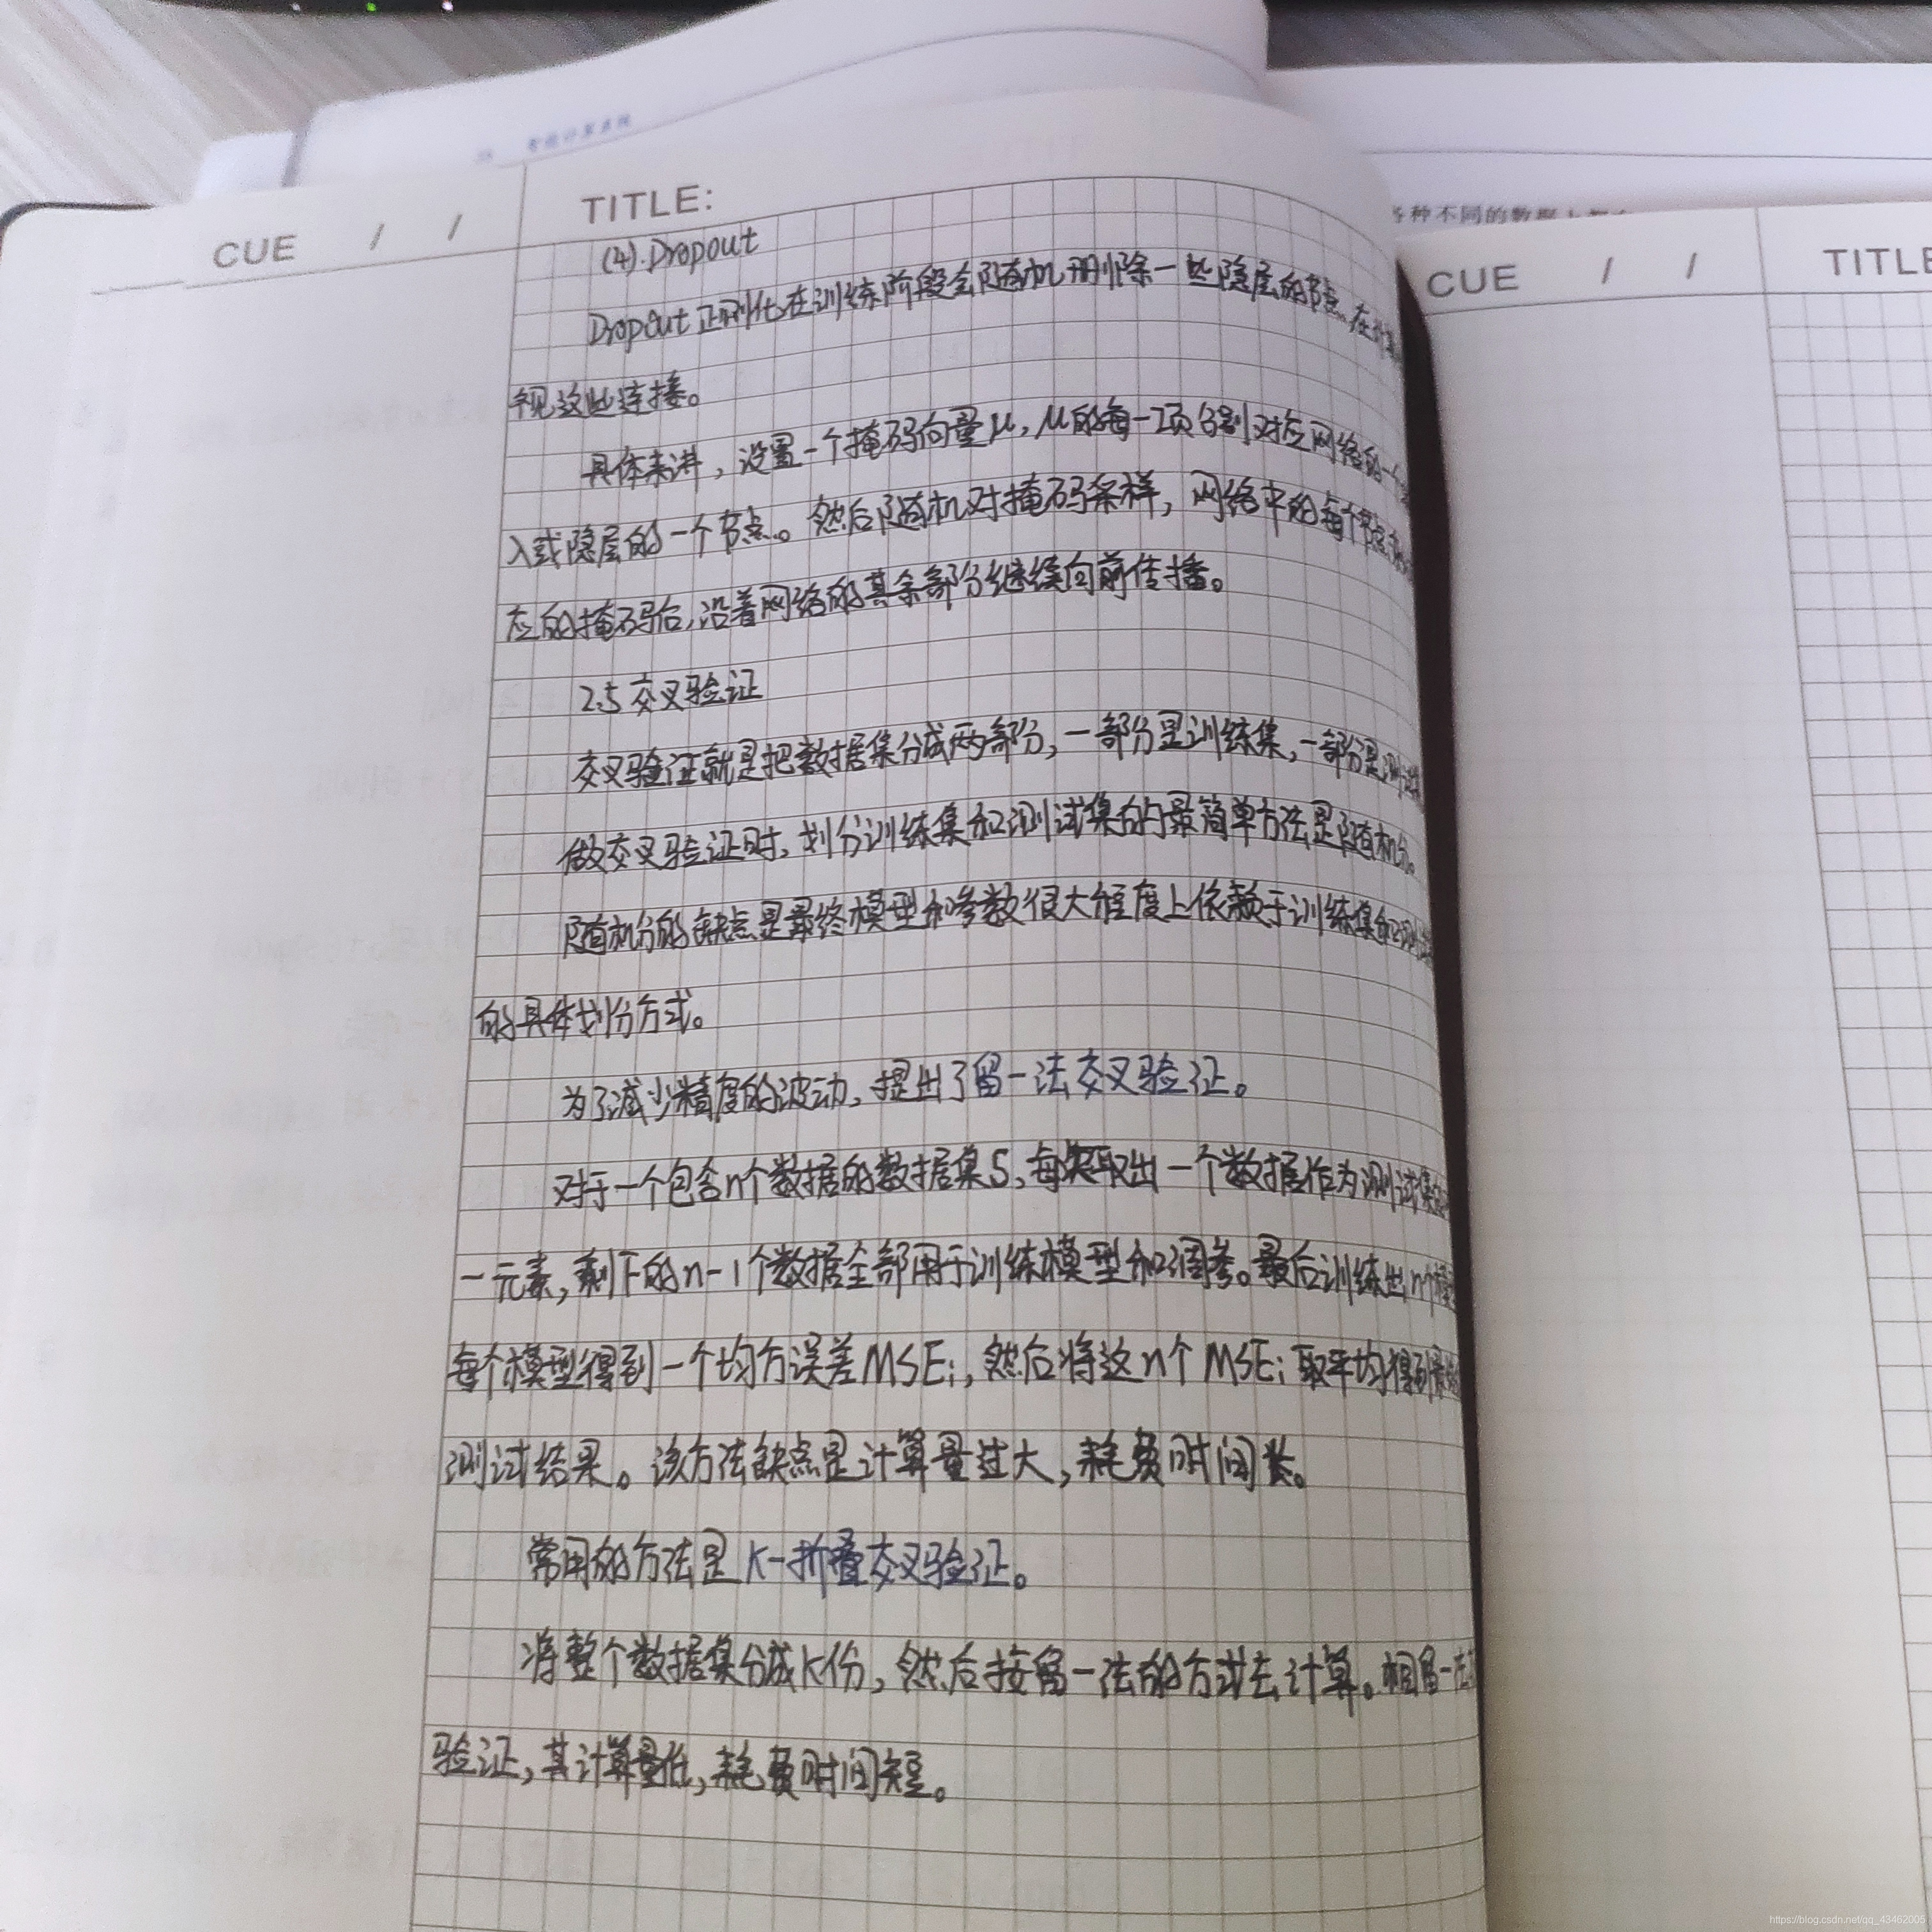 智能计算系统
各种不同的数据
CUE / /
TITLE:
(4). Dropout
Dropout正则化在训练阶段会随机删除一些隐层的节点,在计算
视这些连接。
具体来讲,设置一个掩码向量μ,μ的每一项分别对应网络的一个
入或隐层的一个节点。然后随机对掩码采样,网络中的每个节点
应的掩码后,沿着网络的其余部分继续向前传播。
2.5 交叉验证
交叉验证就是把数据集分成两部分,一部分是训练集,一部分是测试
做交叉验证时,划分训练集和测试集的最简单方法是随机分。
随机分的缺点是最终模型和参数很大程度上依赖于训练集和测
的具体划份方式。
为了减少精度的波动,提出了留一法交叉验证。
对于一个包含n个数据的数据集S,每次取出一个数据作为测试集
一元素,剩下的n-1个数据全部用于训练模型和调参。最后训练出n个模
每个模型得到一个均方误差MSEi,然后将这n个MSEi取平均得到最
测试结果。该方法缺点是计算量过大,耗费时间长。
常用的方法是K-折叠交叉验证。
将整个数据集分成K份,然后按留一法的方式去计算。相留一法
验证,其计算量低,耗费时间短。
CUE / /
TITLE
https://blog.csdn.net/qq_43462005